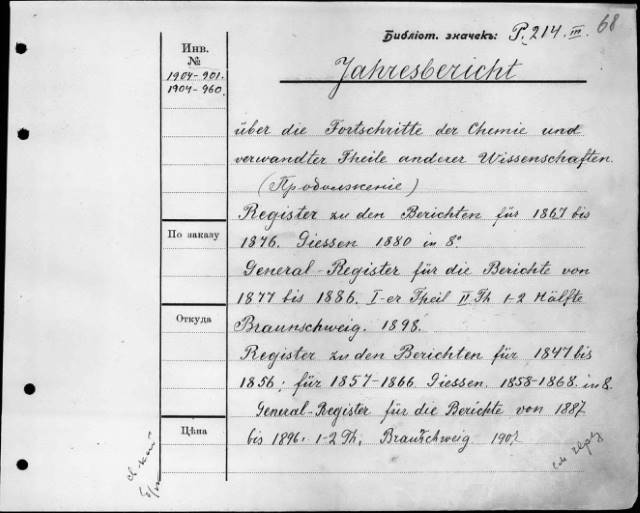 68
Библіот. значекъ: P. 214. III.
Инв.
№
1904-901.
1904-960.
Jahresbericht
über die Fortschritte der Chemie und
verwandter Theile anderer Wissenschaften.
(Продолженіе)
Register zu den Berichten für 1867 bis
1876. Giessen 1880 in 8°
General-Register für die Berichte von
1877 bis 1886. I-er Theil II Th. 1-2 Hälfte
Braunschweig. 1898.
Register zu den Berichten für 1847 bis
1856; für 1857-1866. Giessen. 1858-1868. in 8.
General-Register für die Berichte von 1887
bis 1896. 1-2 Th. Braunschweig
По заказу
Откуда
Цѣна